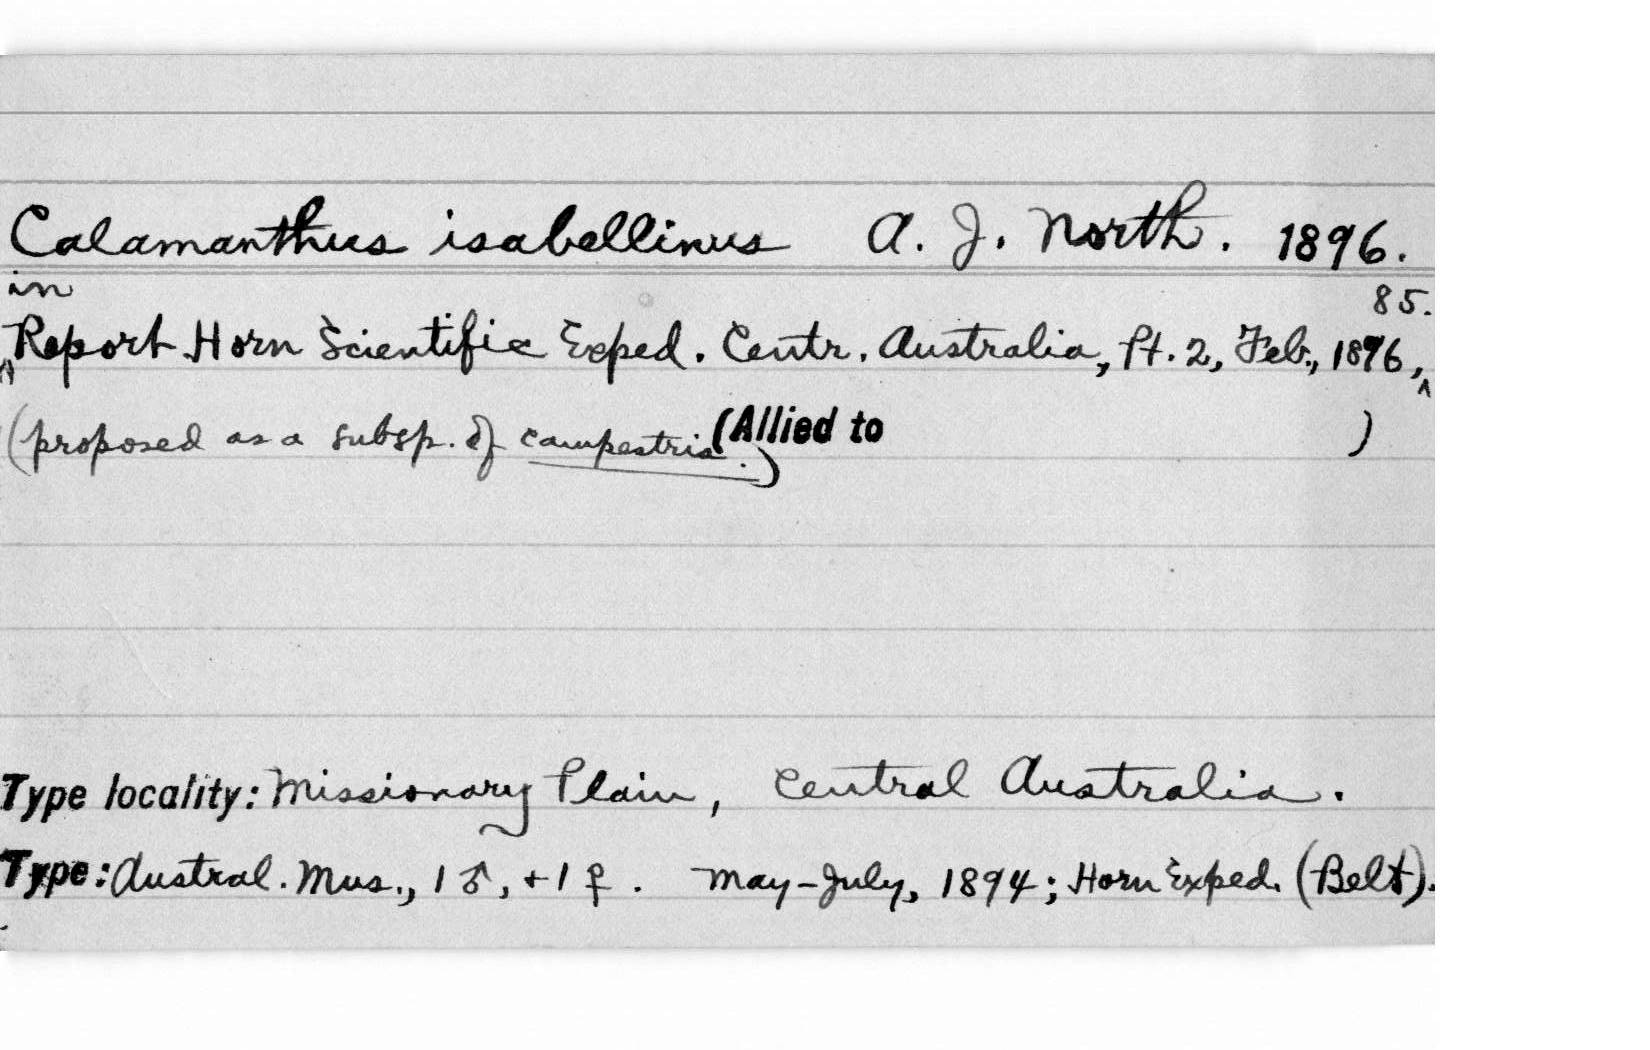 Calamanthus isabellinus A. J. North. 1896.
in
85.
Report Horn Scientific Exped. Centr. Australia, Pt. 2, Feb., 1896, ^
(proposed as a subsp. of campestris.) (Allied to )
Type locality: Missionary Plain, Central Australia.
Type: Austral. Mus., 1 ♂, + 1 ♀. May-July, 1894; Horn Exped. (Belt).